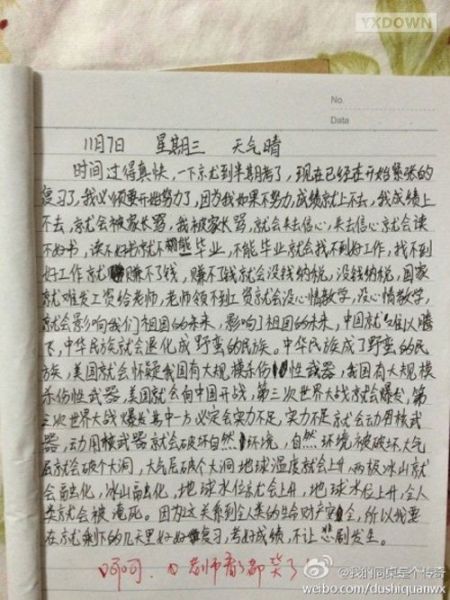 YXDOWN
No.
Data
11月7日 星期三 天气晴
时间过得真快,一下就到半期考了,现在已经在开始紧张的
复习了,我必须要开始努力了,因为我如果不努力,成绩就上不去,我成绩上
不去,就会被家长骂,我被家长骂,就会失去信心,失去信心就会读
不好书,读不好书就不能毕业,不能毕业就会找不到好工作,找不到
好工作就赚不了钱,赚不了钱就会没钱纳税,没钱纳税,国家
就难发工资给老师,老师领不到工资就会没心情教学,没心情教学,
就会影响我们祖国的未来,影响了祖国的未来,中国就难以腾
飞,中华民族就会退化成野蛮的民族。中华民族成了野蛮的民
族,美国就会怀疑我国有大规模杀伤性武器,我国有大规模
杀伤性武器,美国就会向中国开战,第三次世界大战就会爆发,第
三次世界大战爆发其中一方必定会实力不足,实力不足就会动用核武
器,动用核武器就会破坏自然环境,自然环境被破坏大气
层就会破个大洞,大气层破个大洞地球温度就会上升,两极冰山就
会融化,冰山融化,地球水位就会上升,地球水位上升,全人
类就会被淹死。因为这关系到全人类的生命财产安全,所以我要
在就剩下的几天里好好复习,考好成绩,不让悲剧发生。
呵呵,老师看了都笑了
@我的同桌是个传奇
weibo.com/dushiquanwx